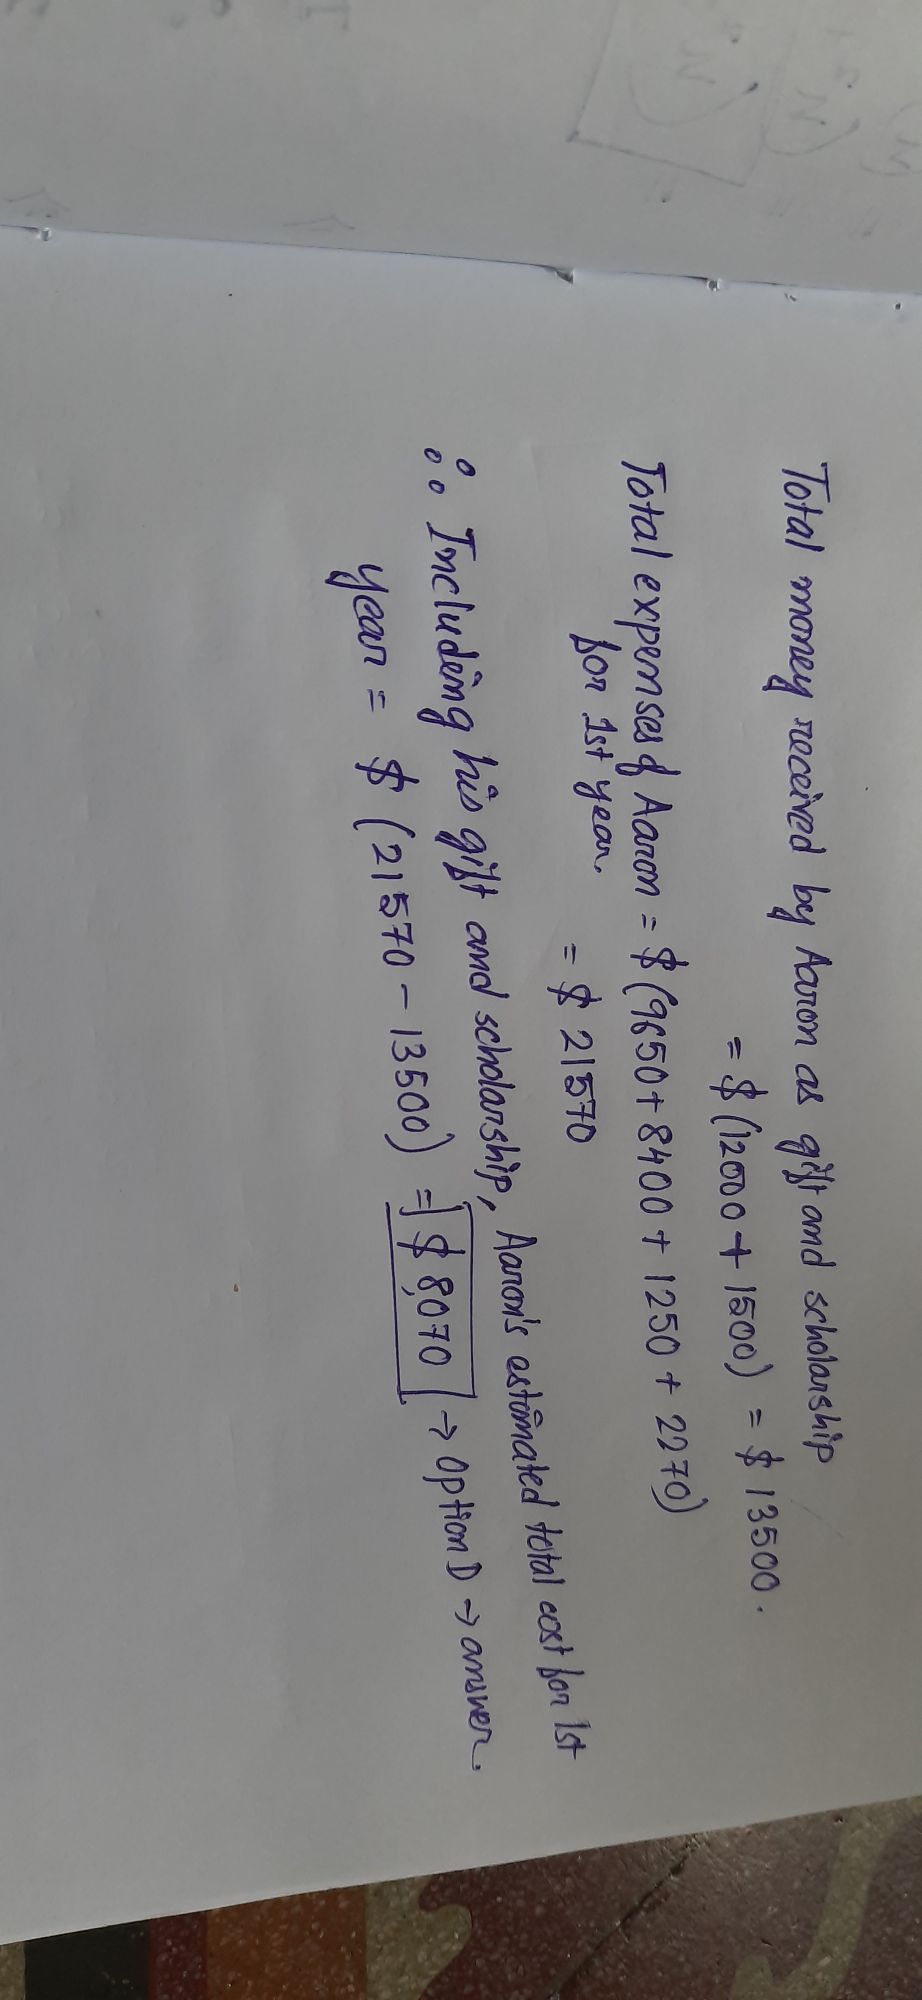 Total money received by Aaron as gift and scholarship
= $ (12000 + 1500) = $ 13500.
Total expenses of Aaron = $ (9650 + 8400 + 1250 + 2270)
for 1st year.
= $ 21570
∴ Including his gift and scholarship, Aaron's estimated total cost for 1st
year = $ (21570 - 13500) = $ 8,070 → Option D → answer.